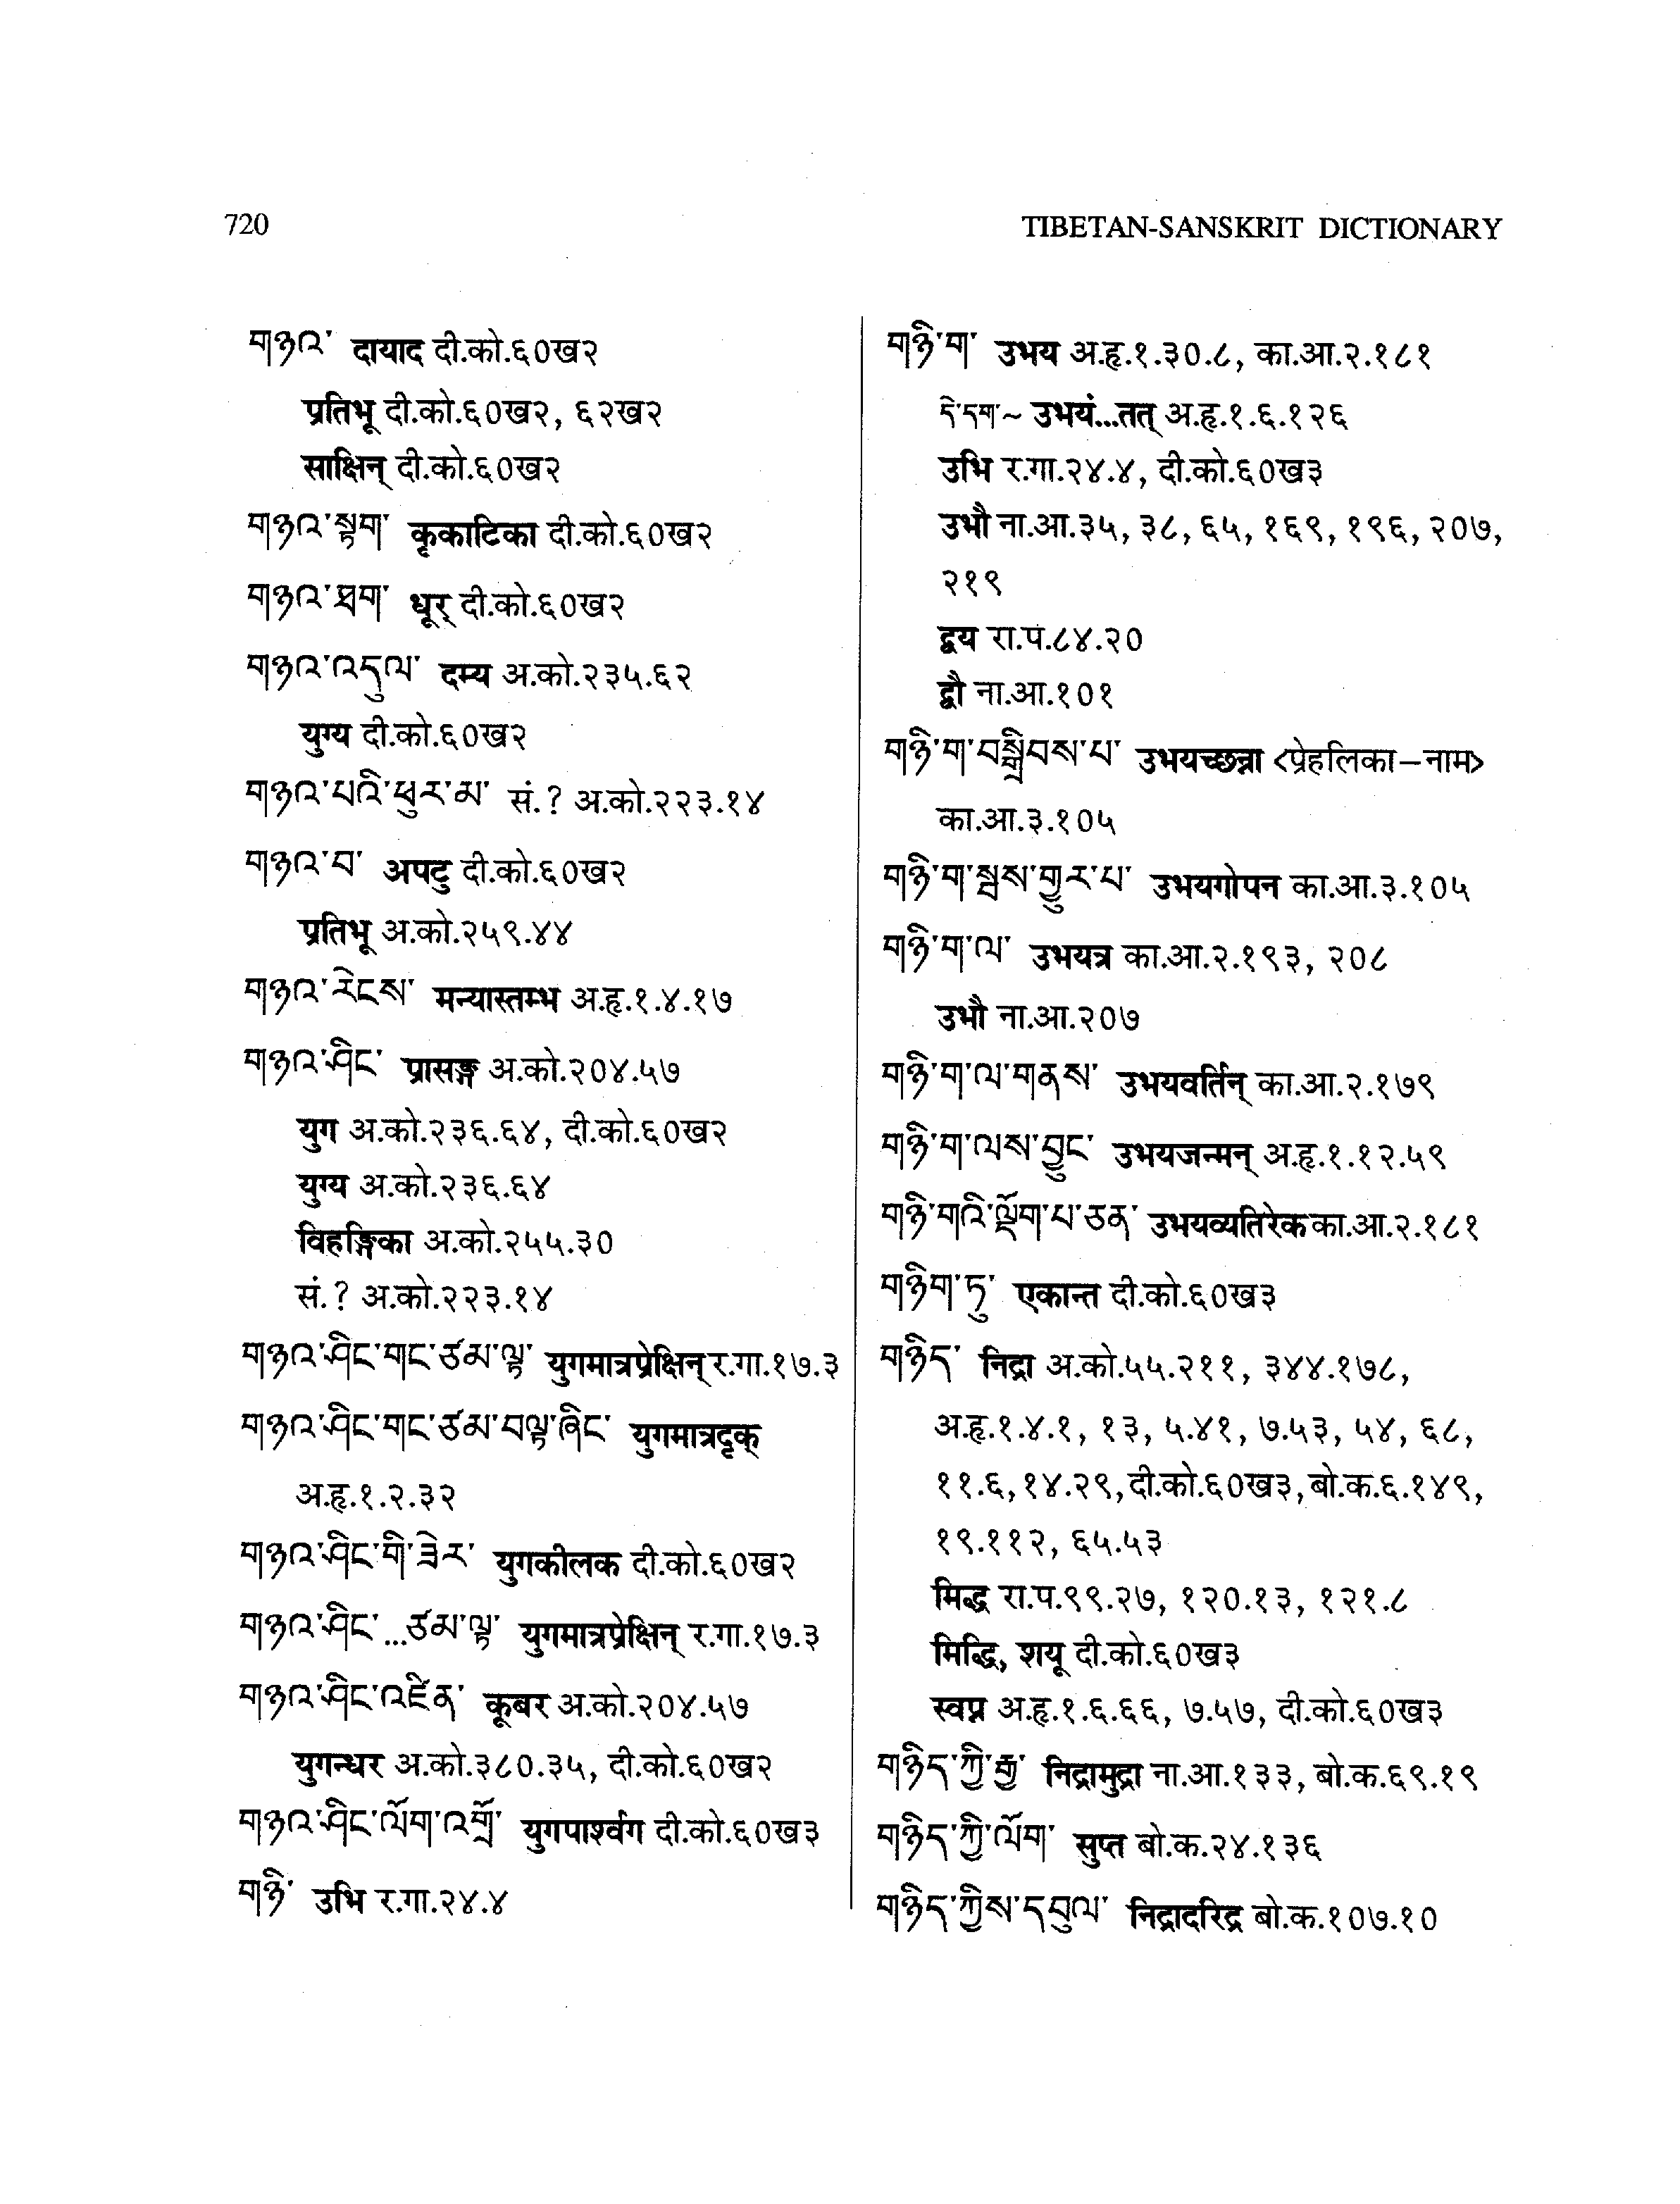 720
TIBETAN-SANSKRIT DICTIONARY
གཉའ་ दायाद दी.को.६०ख२
प्रतिभू दी.को.६०ख२, ६२ख२
साक्षिन् दी.को.६०ख२
གཉའ་སྟག་ कृकाटिका दी.को.६०ख२
གཉའ་ཐག་ धूर् दी.को.६०ख२
གཉའ་འདུལ་ दम्य अ.को.२३५.६२
युग्य दी.को.६०ख२
གཉའ་པའི་ཕུར་མ་ सं.? अ.को.२२३.१४
གཉའ་བ་ अपटु दी.को.६०ख२
प्रतिभू अ.को.२५९.४४
གཉའ་རེངས་ मन्यास्तम्भ अ.हृ.१.४.१७
གཉའ་ཤིང་ प्रासङ्ग अ.को.२०४.५७
युग अ.को.२३६.६४, दी.को.६०ख२
युग्य अ.को.२३६.६४
विहङ्गिका अ.को.२५५.३०
सं.? अ.को.२२३.१४
གཉའ་ཤིང་གང་ཙམ་ལྟ་ युगमात्रप्रेक्षिन् र.गा.१७.३
གཉའ་ཤིང་གང་ཙམ་བལྟ་ཞིང་ युगमात्रदृक्
अ.हृ.१.२.३२
གཉའ་ཤིང་གི་ཟེར་ युगकीलक दी.को.६०ख२
གཉའ་ཤིང་...ཙམ་ལྟ་ युगमात्रप्रेक्षिन् र.गा.१७.३
གཉའ་ཤིང་འཛིན་ कूबर अ.को.२०४.५७
युगन्धर अ.को.३८०.३५, दी.को.६०ख२
གཉའ་ཤིང་ལོག་འགྲོ་ युगपार्श्वग दी.को.६०ख३
གཉི་ उभि र.गा.२४.४
གཉི་ག་ उभय अ.हृ.१.३०.८, का.आ.२.१८१
དེ་དག་~ उभयं...तत् अ.हृ.१.६.१२६
उभि र.गा.२४.४, दी.को.६०ख३
उभौ ना.आ.३५, ३८, ६५, १६९, १९६, २०७,
२१९
द्वय रा.प.८४.२०
द्वौ ना.आ.१०१
གཉི་ག་བསྒྲིབས་པ་ उभयच्छन्ना <प्रेहलिका–नाम>
का.आ.३.१०५
གཉི་ག་སྦས་གྱུར་པ་ उभयगोपन का.आ.३.१०५
གཉི་ག་ལ་ उभयत्र का.आ.२.१९३, २०८
उभौ ना.आ.२०७
གཉི་ག་ལ་གནས་ उभयवर्तिन् का.आ.२.१७९
གཉི་ག་ལས་བྱུང་ उभयजन्मन् अ.हृ.१.१२.५९
གཉི་གའི་ལྡོག་པ་ཅན་ उभयव्यतिरेक का.आ.२.१८१
གཉིག་ཏུ་ एकान्त दी.को.६०ख३
གཉིད་ निद्रा अ.को.५५.२११, ३४४.१७८,
अ.हृ.१.४.१, १३, ५.४१, ७.५३, ५४, ६८,
११.६, १४.२९, दी.को.६०ख३, बो.क.६.१४९,
१९.११२, ६५.५३
मिद्ध रा.प.९९.२७, १२०.१३, १२१.८
मिद्धि, शयू दी.को.६०ख३
स्वप्न अ.हृ.१.६.६६, ७.५७, दी.को.६०ख३
གཉིད་ཀྱི་རྒྱ་ निद्रामुद्रा ना.आ.१३३, बो.क.६९.१९
གཉིད་ཀྱི་ལོག་ सुप्त बो.क.२४.१३६
གཉིད་ཀྱིས་དབུལ་ निद्रादरिद्र बो.क.१०७.१०